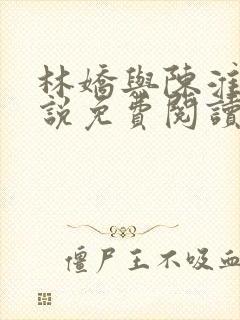 林嬌與陳淮
說免費閱讀
僵尸王不吸血